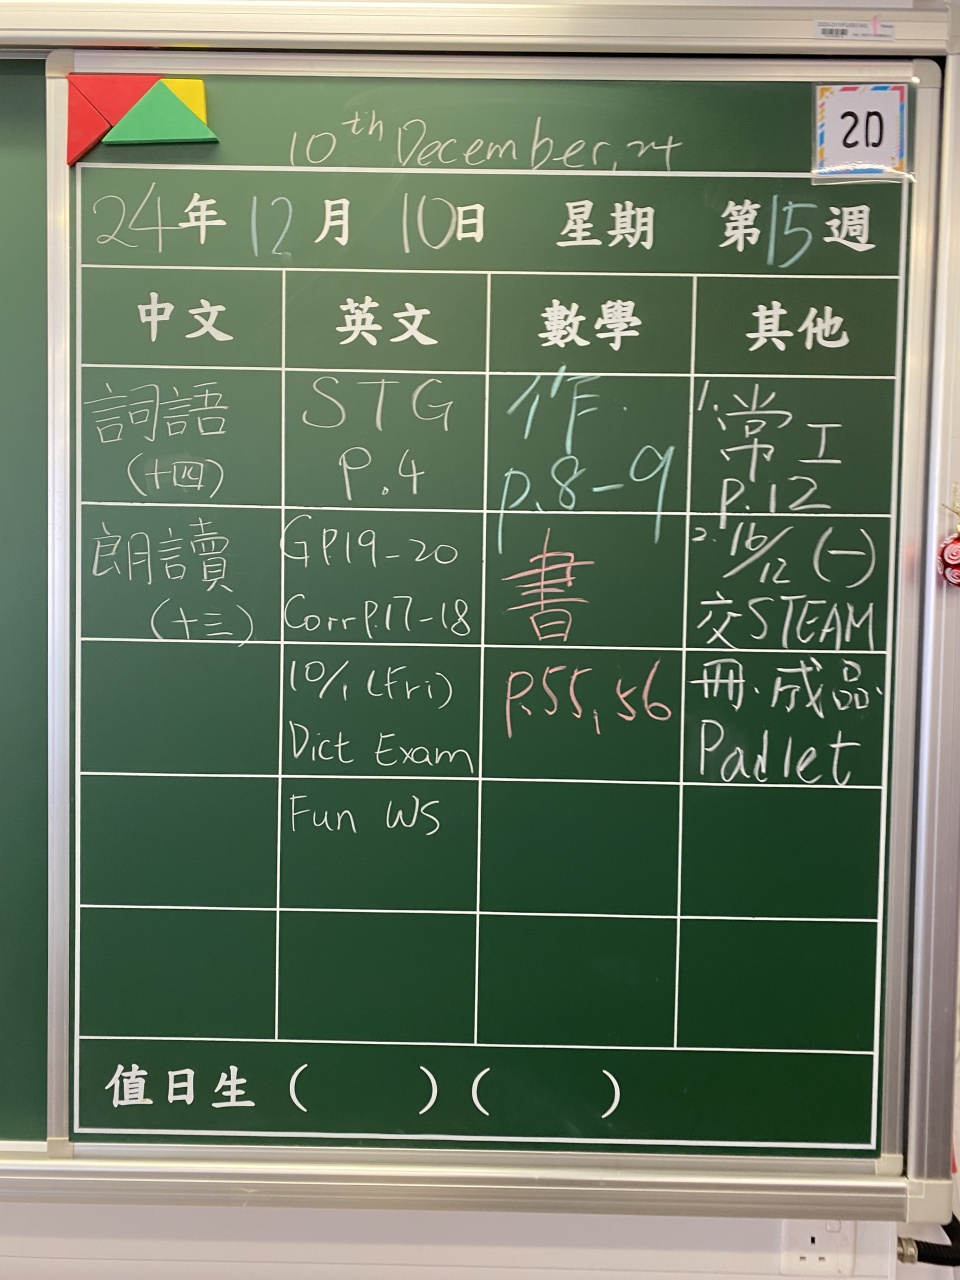 10th December, 24
2D
24年 12月 10日 星期 第15週
中文 英文 數學 其他
詞語
(十四)
朗讀
(十三)
STG
P.4
GP19-20
Corr P.17-18
10/1 (Fri)
Dict Exam
Fun WS
作
p.8-9
書
p.55, 56
1. 常工
p.12
2. 16/12 (一)
交STEAM
冊.成品.
Padlet
值日生 ( ) ( )